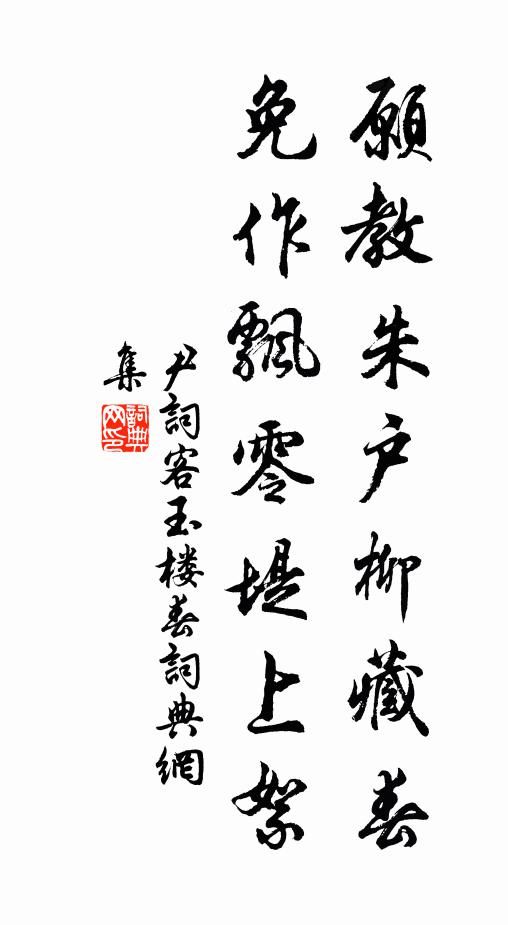 願教朱户柳藏春
免作飄零堤上絮
尹詞客玉楼春詞典網
集
詞典
网印